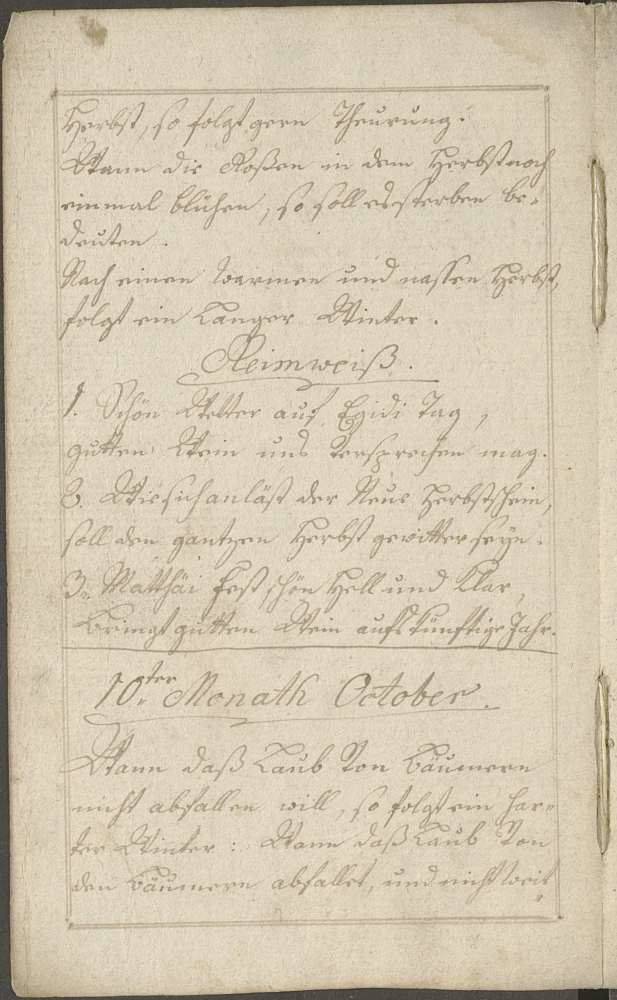 Herbst, so folgt gern Theurung.
Wann die Roßen in dem Herbst noch
einmal blühen, so soll es sterben be-
deuten.
Nach einen warmen und nassen Herbst,
folgt ein Langer Winter.
Reimweiß.
1. Schön Wetter auf Egidi Tag,
gutten Wein uns versprechen mag.
2. Wie sich anläst der Neue Herbstschein,
soll den gantzen Herbst gewitter seyn.
3. Matthäi fest, schön Hell und Klar,
bringt gutten Wein aufs künftige Jahr.
10.ter Monath October.
Wann daß Laub von bäumern
nicht abfallen will, so folgt ein har-
ter Winter: Wann daß Laub von
den bäumern abfallet, und nicht weit